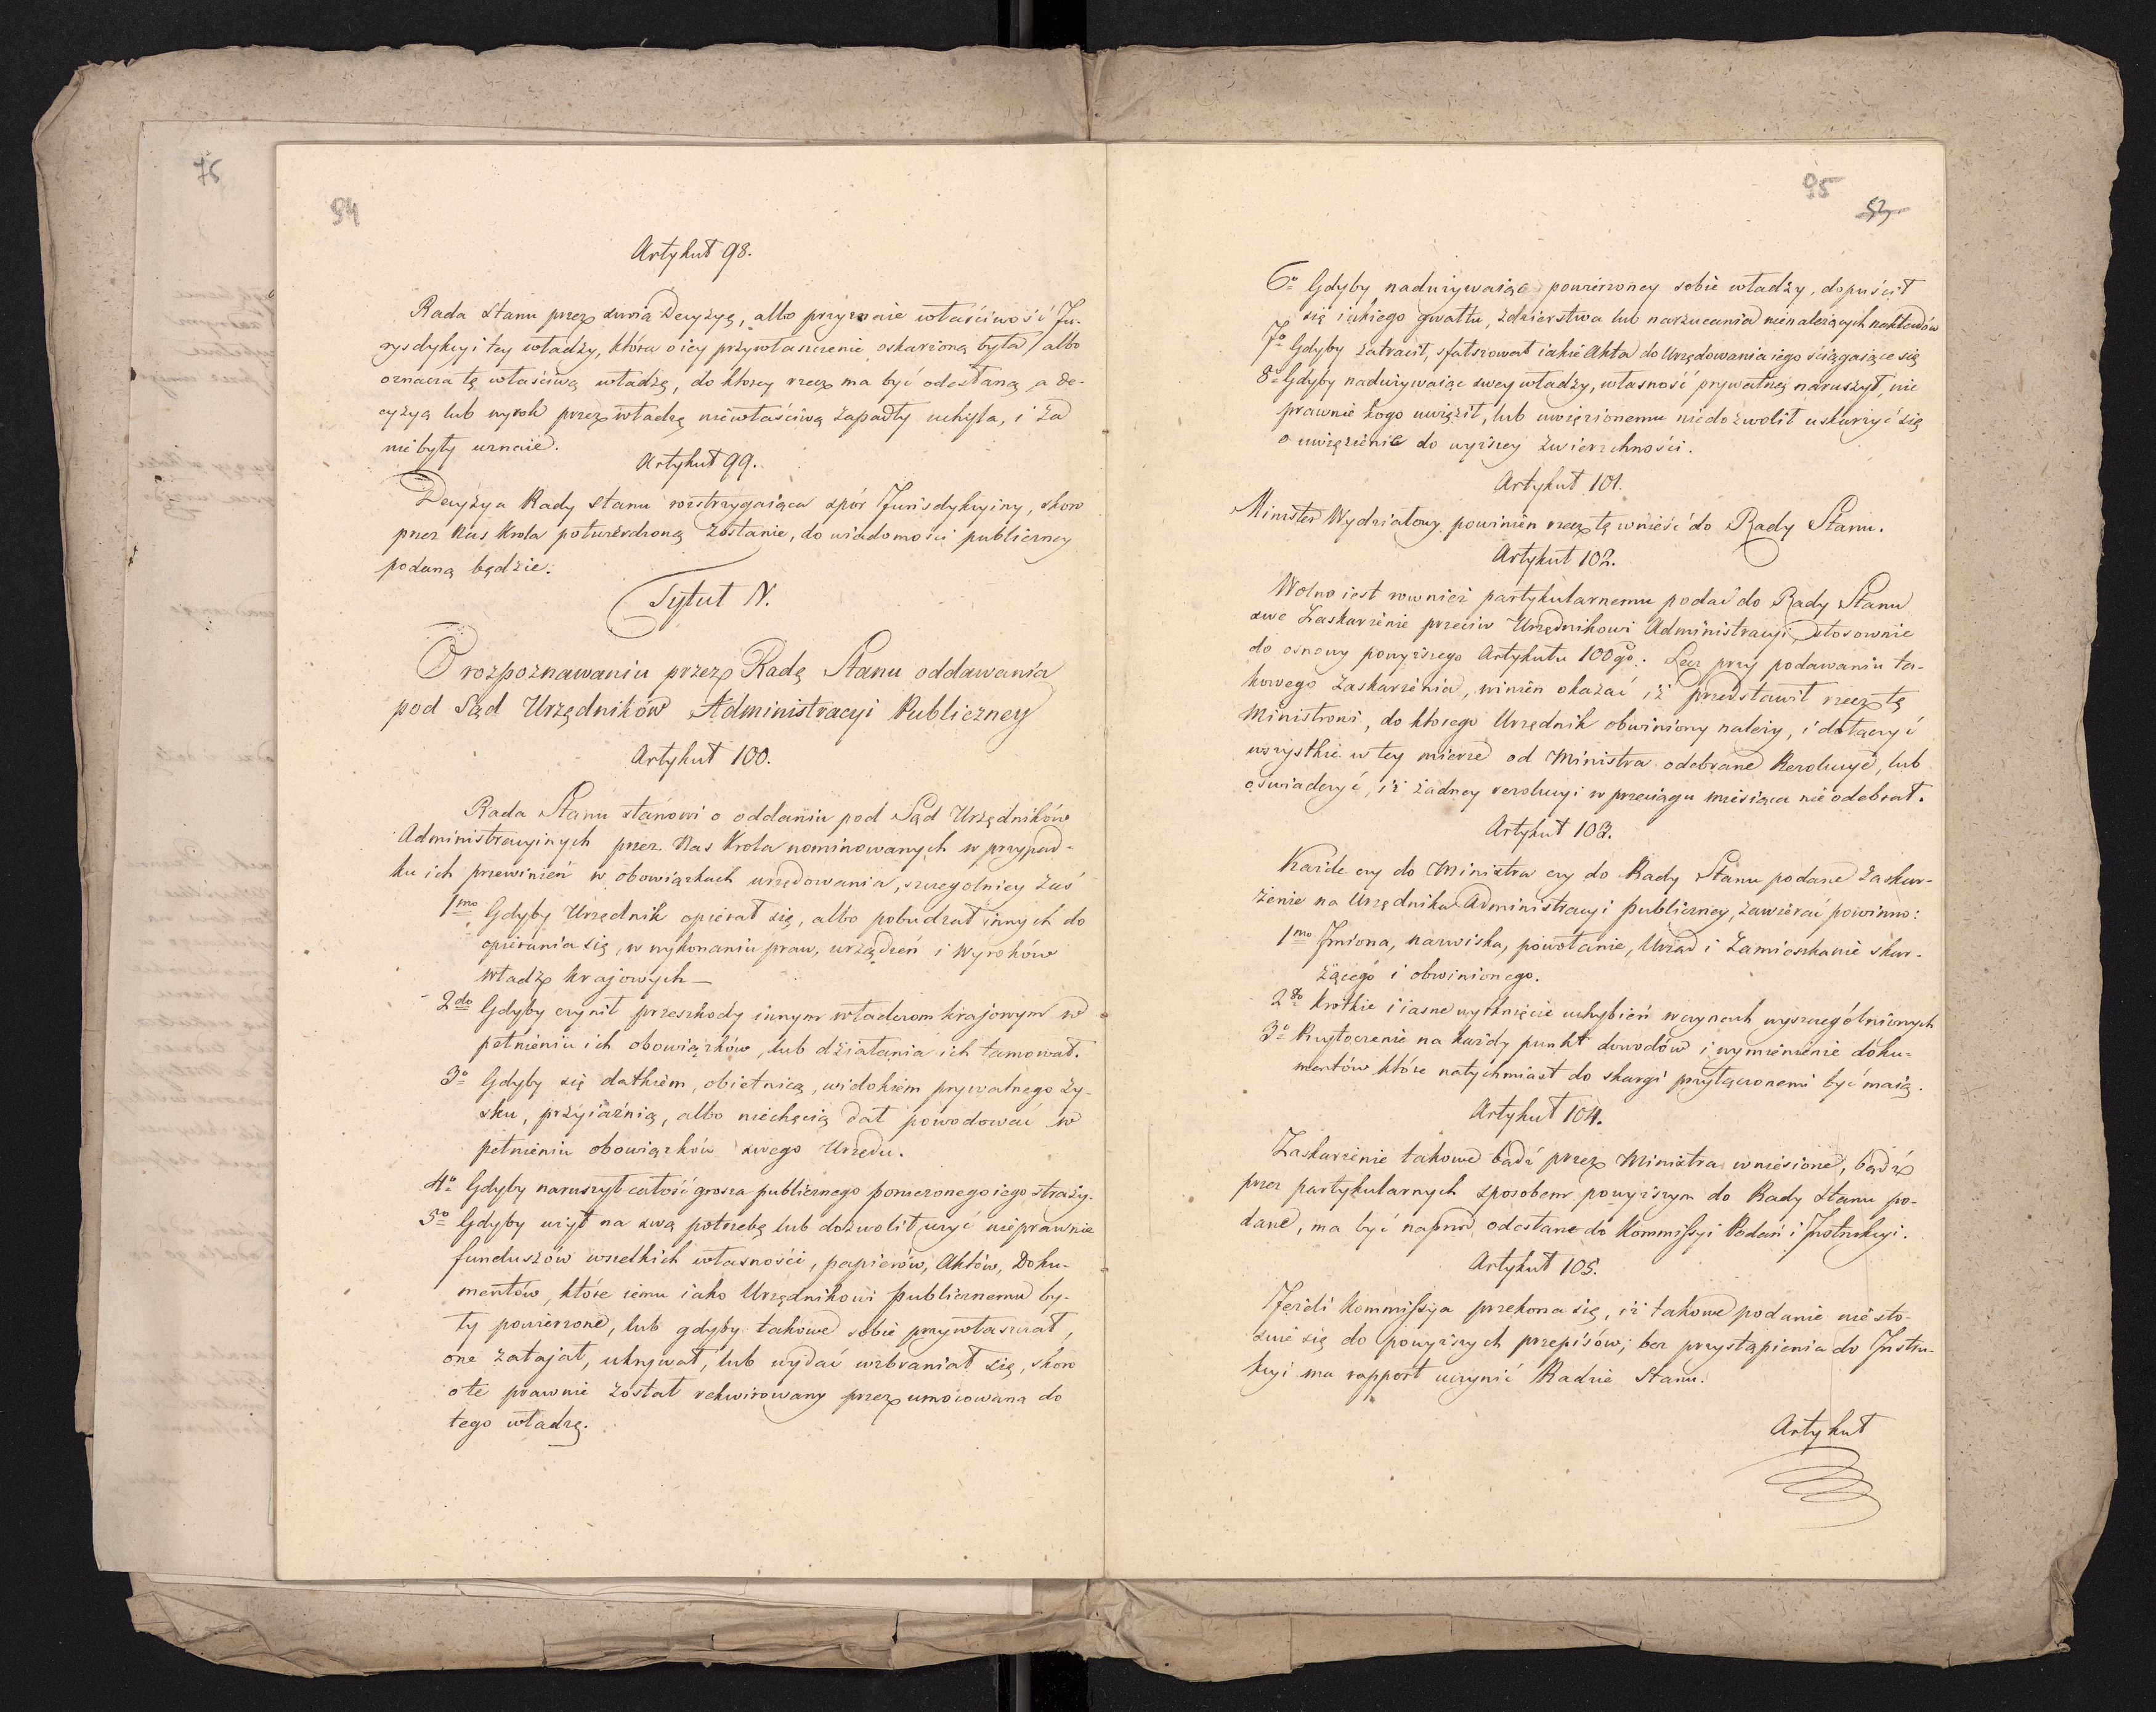 94
Artykuł 98.
Rada Stanu przez swoią Decyzyą, albo przyznaie właściwość Ju-
rysdykcyi tey władzy, która o iey przywłaszczenie oskarżoną była, albo
oznacza tę właściwą władzę, do ktorey rzecz ma być odesłaną, a de-
cyzyą lub wyrok przez władzę niewłaściwą zapadły uchyla, i za
niebyły uznaie.
Artykuł 99.
Decyzya Rady Stanu rozstrzygaiąca spór Jurisdykcyiny, skoro
przez Nas Krola potwierdzoną zostanie, do wiadomości publiczney
podaną będzie.
Tytuł V.
O rozpoznawaniu przez Radę Stanu oddawania
pod Sąd Urzędników Administracyi Publiczney
Artykuł 100.
Rada Stanu stanowi o oddaniu pod Sąd Urzędników
Administracyinych przez Nas Krola nominowanych w przypad-
ku ich przewinień w obowiązkach urzędowania, szczegolniey zaś
1mo Gdyby Urzędnik opierał się, albo pobudzał innych do
opierania się, w wykonaniu praw, urządzeń i Wyroków
Władz Krajowych—
2do Gdyby czynił przeszkody innym władzom krajowym w
pełnieniu ich obowiązków, lub działania ich tamował.
3o Gdyby się datkiem, obietnicą, widokiem prywatnego zy-
sku, przyiaźnią, albo niechęcią dał powodować w
pełnieniu obowiązków swego Urzędu.
4o Gdyby naruszył całość grosza publicznego powierzonego iego straży.
5o Gdyby użył na swą potrzebę lub dozwolił użyć nieprawnie
funduszów wszelkich własności, papierów, Aktów, Doku-
mentów, które iemu iako Urzędnikowi publicznemu by-
ły powierzone, lub gdyby takowe sobie przywłaszczał,
one zatajał, ukrywał, lub wydać wzbraniał się, skoro
o te prawnie został rekwirowany przez umocowaną do
tego władzę.
95
6o Gdyby nadużywaiąc powierzoney sobie władzy, dopuścił
się iakiego gwałtu, zdzierstwa lub narzucania nienależących nakładów
7o Gdyby zatracił, sfałszował iakie Akta do Urzędowania iego ściągaiące się
8o Gdyby nadużywaiąc swey władzy, własność prywatną naruszył, nie
prawnie kogo uwięził, lub uwięzionemu niedozwolił uskarżyć się
o uwięzienie do wyższey zwierzchności.
Artykuł 101.
Minister Wydziałowy powinien rzecz tę wnieść do Rady Stanu.
Artykuł 102.
Wolno iest rownież partykularnemu podać do Rady Stanu
swe Zaskarżenie przeciw Urzędnikowi Administracyi, stosownie
do osnowy powyższego Artykułu 100go. Lecz przy podawaniu ta-
kowego Zaskarżenia, winien okazać iż przedstawił rzecz tę
Ministrowi, do którego Urzędnik obwiniony należy, i dołączyć
wszystkie w tey mierze od Ministra odebrane Rezolucye, lub
oświadczyć, iż żadney rezolucyi w przeciągu miesiąca nie odebrał.
Artykuł 103.
Każde czy do Ministra czy do Rady Stanu podane Zaskar-
żenie na Urzędnika Administracyi publiczney, zawierać powinno:
1mo Jmiona, nazwiska, powołanie, Urząd i Zamieszkanie skar-
żącego i obwinionego.
2do Krótkie i iasne wytknięcie uchybień w czynach wyszczególnionych
3o Przytoczenie na każdy punkt dowodów i wymienienie doku-
mentów które natychmiast do skargi przyłączonemi być maią.
Artykuł 104.
Zaskarżenie takowe bądź przez Ministra wniesione, bądź
przez partykularnych sposobem powyższym do Rady Stanu po-
dane, ma być naprzód odesłane do Kommissyi Podań i Jnstrukcyi.
Artykuł 105.
Jeżeli Kommissya przekona się, iż takowe podanie nie sto-
suie się do powyższych przepisów, bez przystąpienia do Jnstru-
kcyi ma rapport uczynić Radzie Stanu.
Artykuł